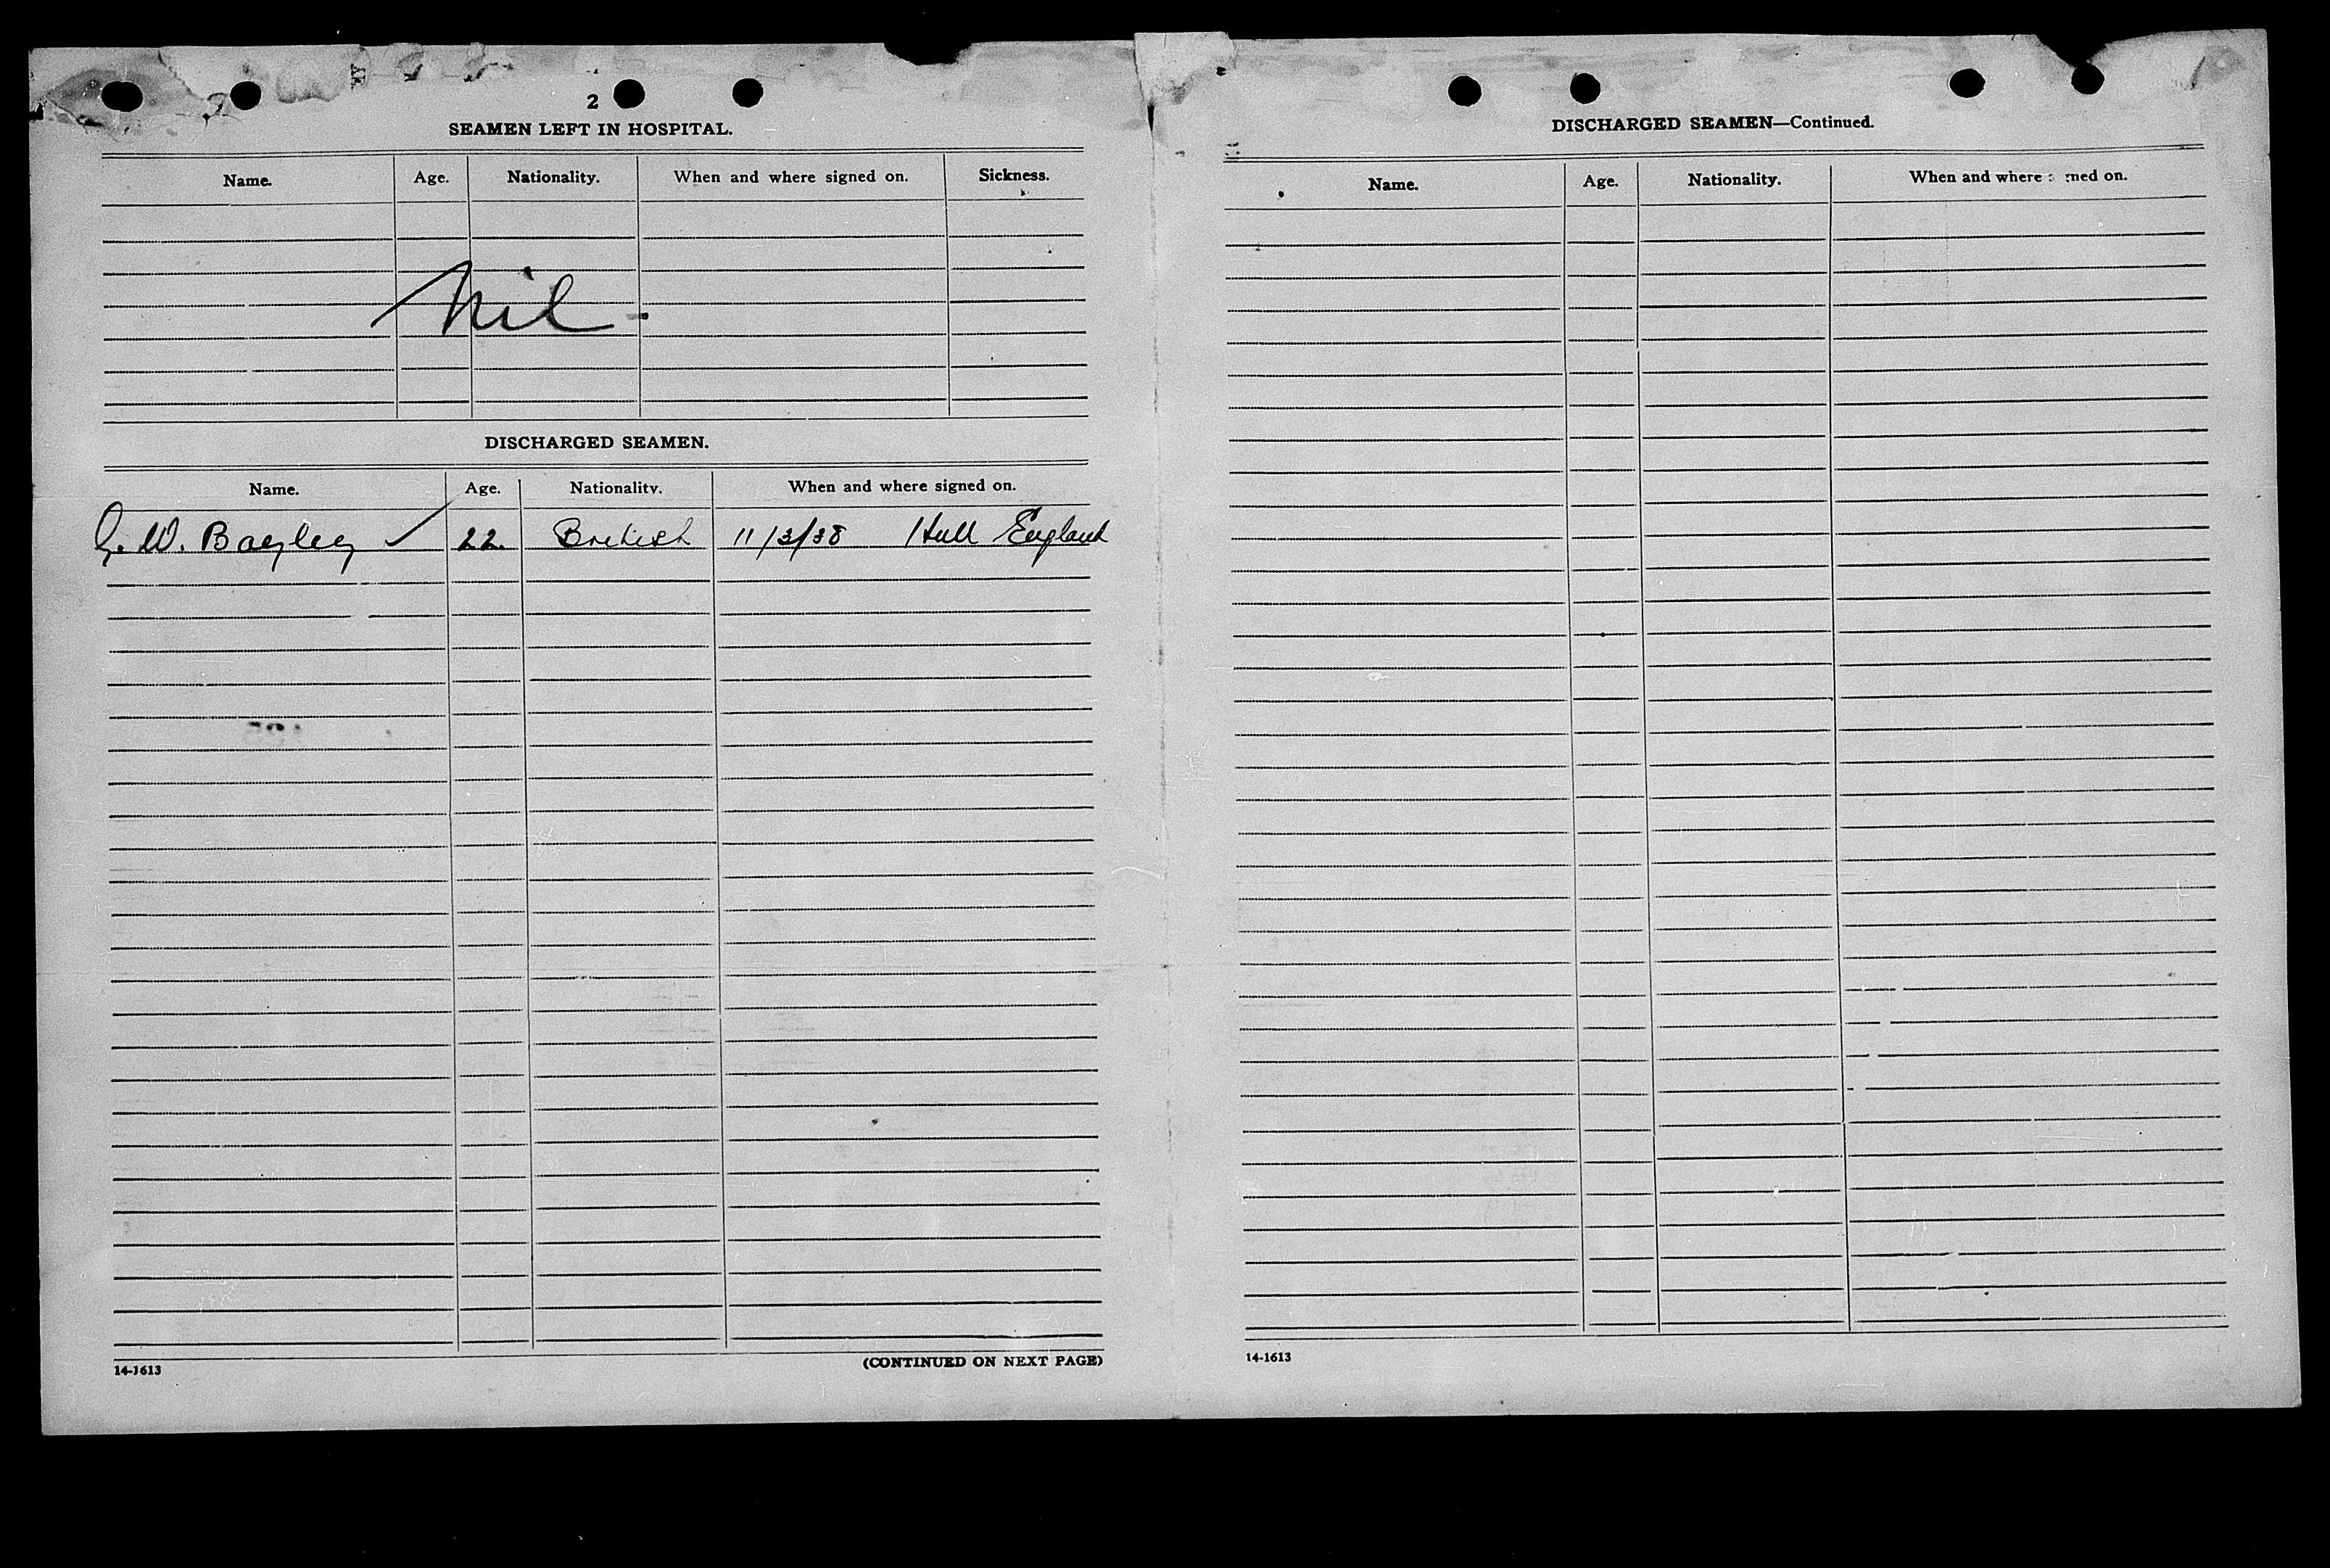 2
SEAMEN LEFT IN HOSPITAL.
Name. Age. Nationality. When and where signed on. Sickness.
Nil
DISCHARGED SEAMEN.
Name. Age. Nationality. When and where signed on.
G. W. Bagley 22. British 11/3/38 Hull England
14-1613
(CONTINUED ON NEXT PAGE)
DISCHARGED SEAMEN—Continued.
Name. Age. Nationality. When and where signed on.
14-1613